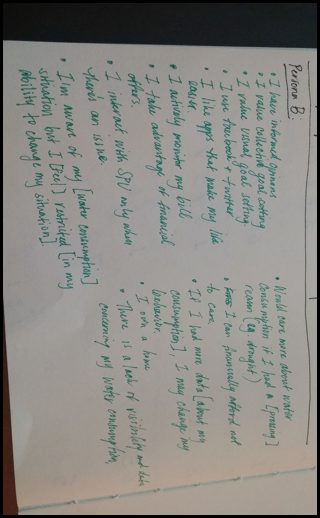 Persona B:
• I have informed opinions
• I value collective goal setting
• I value visual goal setting
• I use facebook + twitter
• I like apps that make my life
easier
• I actively monitor my bill
• I take advantage of financial
offers.
• I interact with SPU only when
there's an issue
• I'm aware of my [water consumption]
situation but I [feel] restricted [in my
ability to change my situation]
• Would care more about water
consumption if I had a [pressing]
reason (eg drought)
• I can financially afford not
to care
• If I had more data [about my
consumption], I may change my
behavior.
• I own a home
• There is a lack of visibility and data
concerning my water consumption.